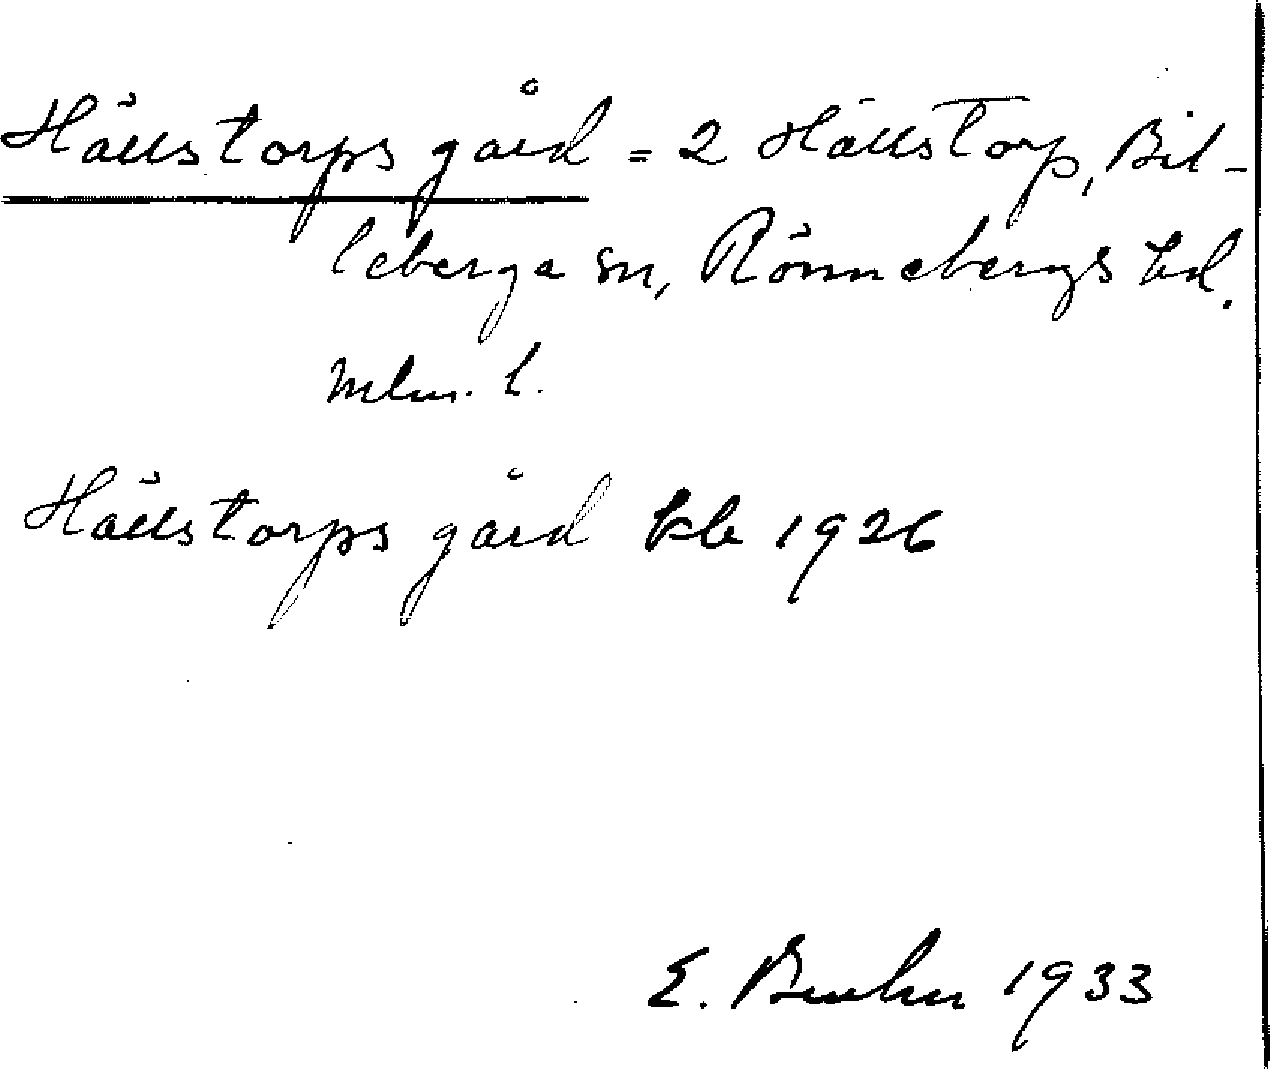 Hällstorps gård = 2 Hällstorp, Bil-
leberga sn, Rönnebergs hd.
Mlm. l.
Hällstorps gård kb 1926
E. 1933